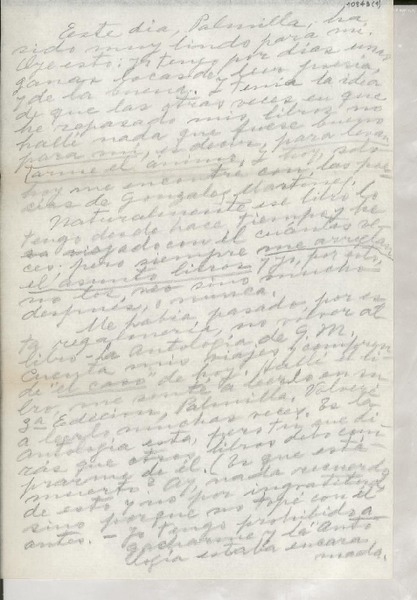 10343(1)
Este día, Palmilla, ha
sido muy lindo para mí.
Oye esto: yo tengo por días unas
ganas locas de leer poesía,
y de la buena. Tenía la idea
de que las otras veces en que
he repasado mis libros no
hallé nada que fuese nuevo
para mí, es decir, para levan-
tarme el ánimo. Y hoy, solo
hoy me encontré con las poe-
sías de González Martínez.
Naturalmente ese libro lo
tengo desde hace tiempo y he
viajado con él cuántas ve-
ces, pero siempre me arreglan
el asunto libros y yo, por eso,
no los veo sino mucho
después, o nunca.
Me había pasado, por es-
ta regalonería, no volver al
libro - la Antología de G.M.
Cuenta mis viajes y compren-
de el caso de hoy. Hallé el li-
bro, me senté a leerlo en su
3a Edición, Palmilla. Volveré
a leerlo muchas veces. Es la
Antología esta, pero tú me di-
rás que otros libros debo com-
prarme de él. (Es que está
muerto? Ay, nada recuerdo
de esto y no por ingratitud
sino porque no topé con él
antes. - Yo tengo prohibido a-
gacharme y la Anto-
logía estaba encara-
mada.